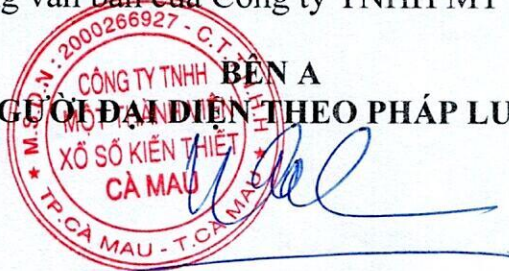 g văn bản của Công ty TNHH MT
BÊN A
GƯỜI ĐẠI DIỆN THEO PHÁP LU
M.S.D.N: 2000266927 - C.T.T.N.H.H
CÔNG TY TNHH
MỘT THÀNH VIÊN
XỔ SỐ KIẾN THIẾT
CÀ MAU
TP.CÀ MAU - T.CÀ MAU